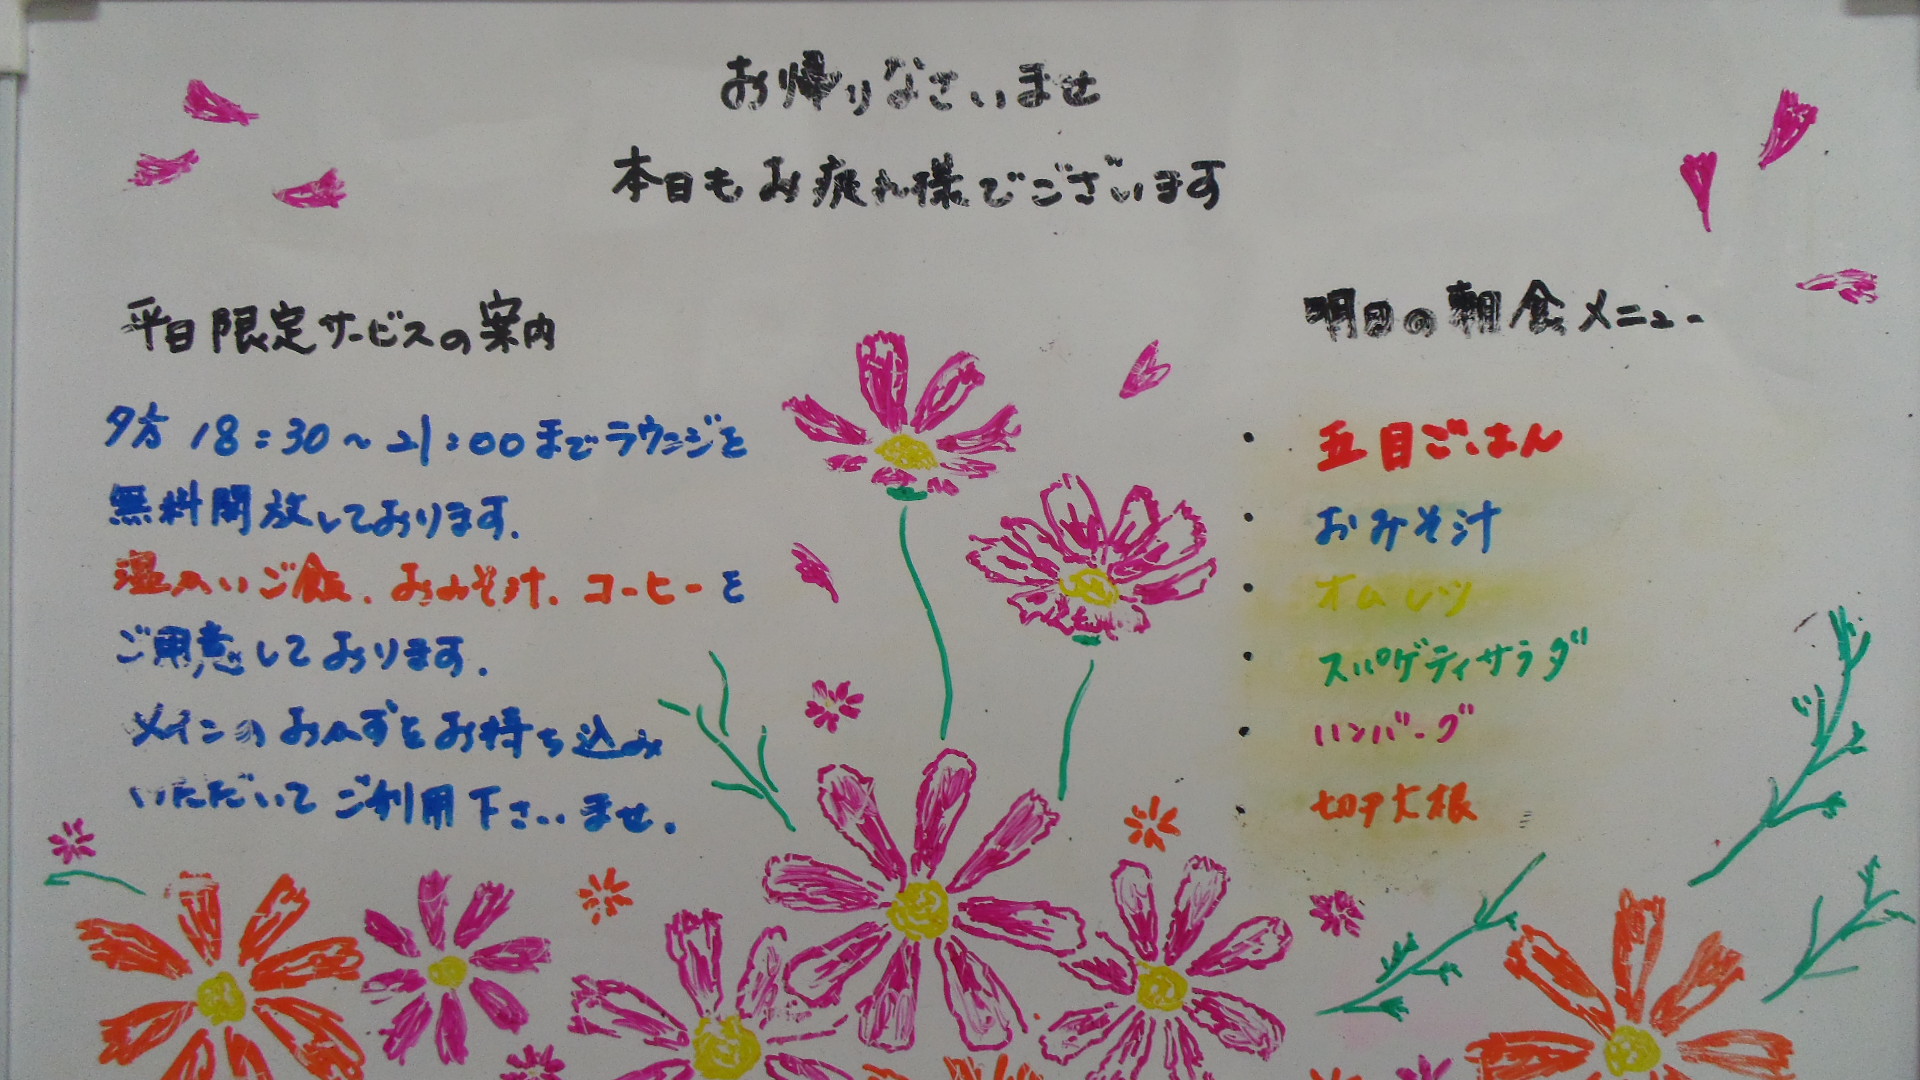 お帰りなさいませ
本日もお疲れ様でございます
平日限定サービスの案内
夕方 18:30~21:00までラウンジを
無料開放しております.
温かいご飯、おみそ汁、コーヒーを
ご用意しております.
メインのおかずをお持ち込み
いただいてご利用下さいませ.
明日の朝食メニュー
・ 五目ごはん
・ おみそ汁
・ オムレツ
・ スパゲティサラダ
・ ハンバーグ
・ 切干大根